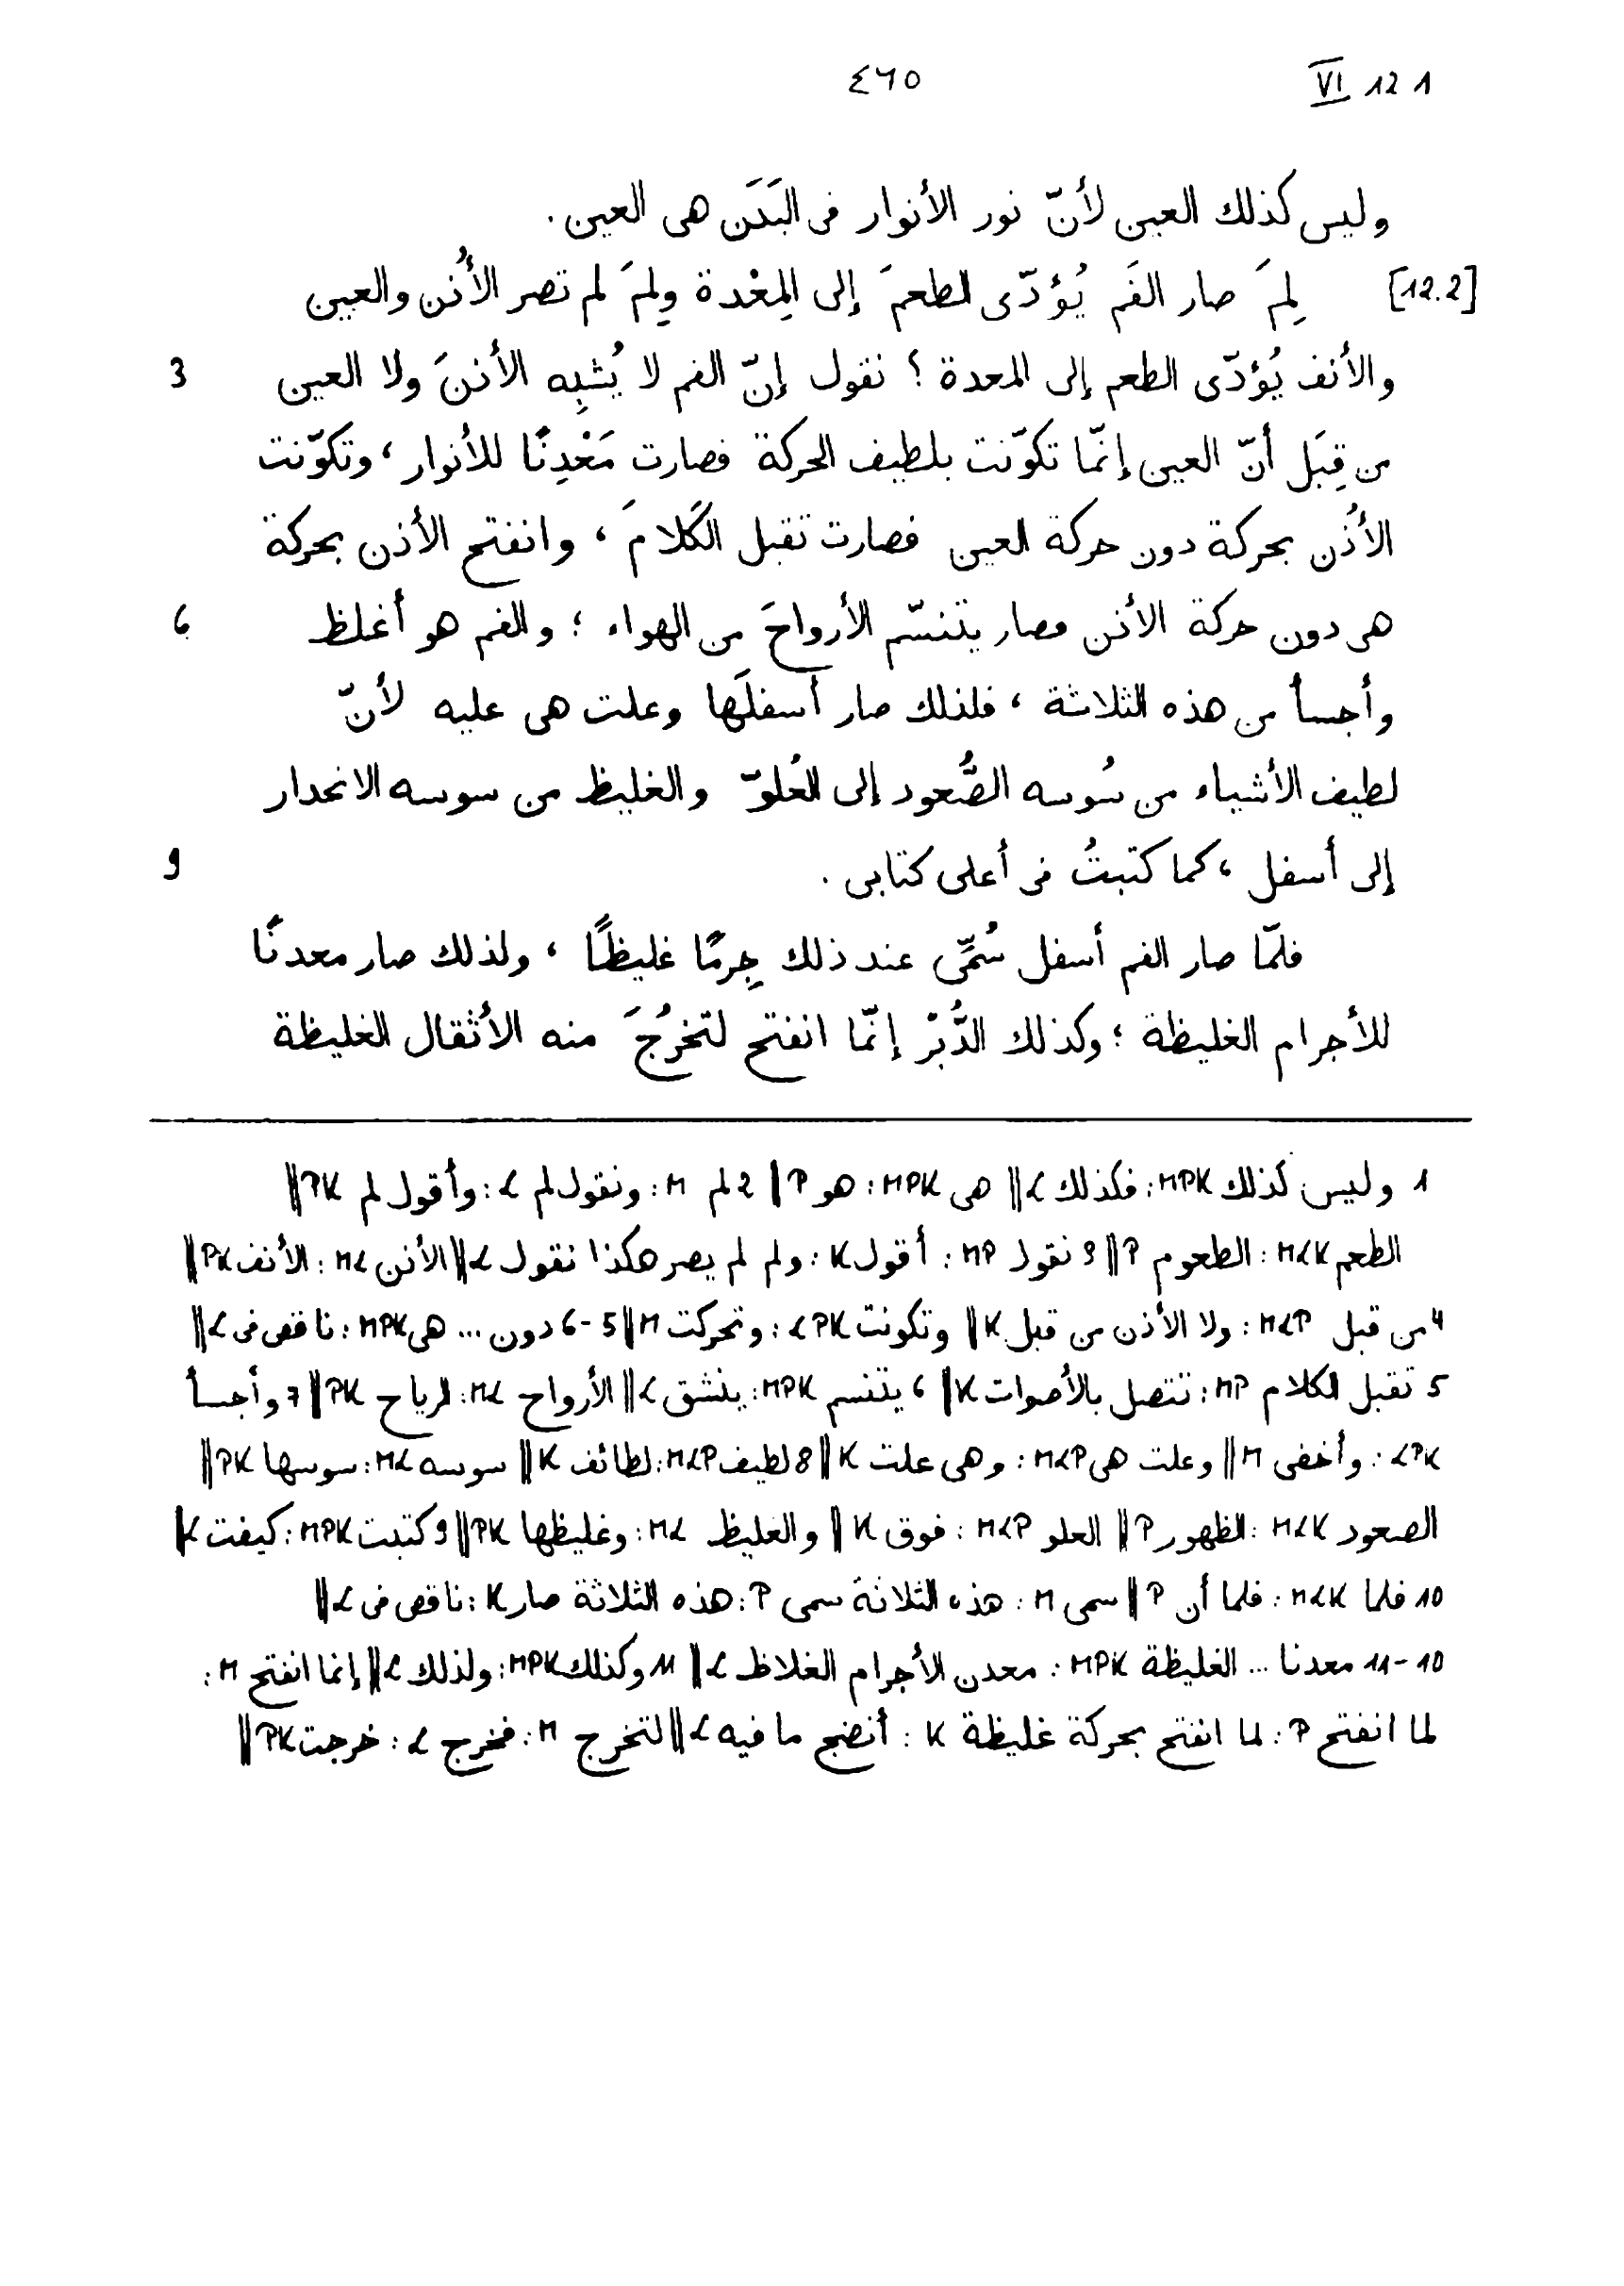 ٤٦٥ VI 12 1
وليس كذلك العين لأنّ نور الأنوار فى البَدَن هى العين .
[12.2] لِمَ صار الفَم يُؤدّى الطعمَ إلى المِعْدة ولِمَ لم تصر الأُذن والعين
والأنف يُؤدّى الطعم إلى المعدة ؟ نقول إنّ الفم لا يُشبِه الأذنَ ولا العين 3
من قِبَل أنّ العين إنّما تكوّنت بلطيف الحركة فصارت مَعْدِنًا للأنوار ، وتكوّنت
الأذُن بحركة دون حركة العين فصارت تقبل الكَلامَ ، وانفتح الأذن بحركة
هى دون حركة الأذن فصار يتنسّم الأرواحَ من الهواء ؛ والفم هو أغلظ 6
وأجسأ من هذه الثلاثة ، فلذلك صار أسفلَها وعلت هى عليه لأنّ
لطيف الأشياء من سُوسه الصُّعود إلى العُلوّ والغليظ من سوسه الانحدار
إلى أسفل ، كما كتبتُ فى أعلى كتابى . 9
فلمّا صار الفم أسفل سُمِّى عند ذلك جِرمًا غليظًا ، ولذلك صار معدنًا
للأجرام الغليظة ؛ وكذلك الدُّبْر إنّما انفتح لتخرُجَ منه الأثقال الغليظة
1 وليس كذلك MPK : فكذلك L || هى MPK : هو P || 2 لم M : ونقول لم L : وأقول لم PK ||
الطعم MLK : الطعوم P || 3 نقول MP : أقول K : ولم لم يصر هكذا نقول L || الأذن ML : الأنف PK ||
4 من قبل MLP : ولا الأذن من قبل K || وتكونت LPK : وتحركت M || 5-6 دون ... هى MPK : ناقص فى L ||
5 تقبل الكلام MP : تتصل بالأصوات K || 6 يتنسم MPK : ينشق L || الأرواح ML : الرياح PK || 7 وأجسأ
LPK : وأخفى M || وعلت هى MLP : وهى علت K || 8 لطيف MLP : لطائف K || سوسه ML : سوسها PK ||
الصعود MLK : الظهور P || العلو MLP : فوق K || والغليظ ML : وغليظها PK || 9 كتبت MPK : كيفت L ||
10 فلما MLK : فلما أن P || سمى M : هذه الثلاثة سمى P : هذه الثلاثة صار K : ناقص فى L ||
10-11 معدنا ... الغليظة MPK : معدن الأجرام الغلاظ L || 11 وكذلك MPK : ولذلك L || إنما انفتح M :
لما انفتح P : لما انفتح بحركة غليظة K : أنضج ما فيه L || لتخرج M : فخرج L : خرجت PK ||